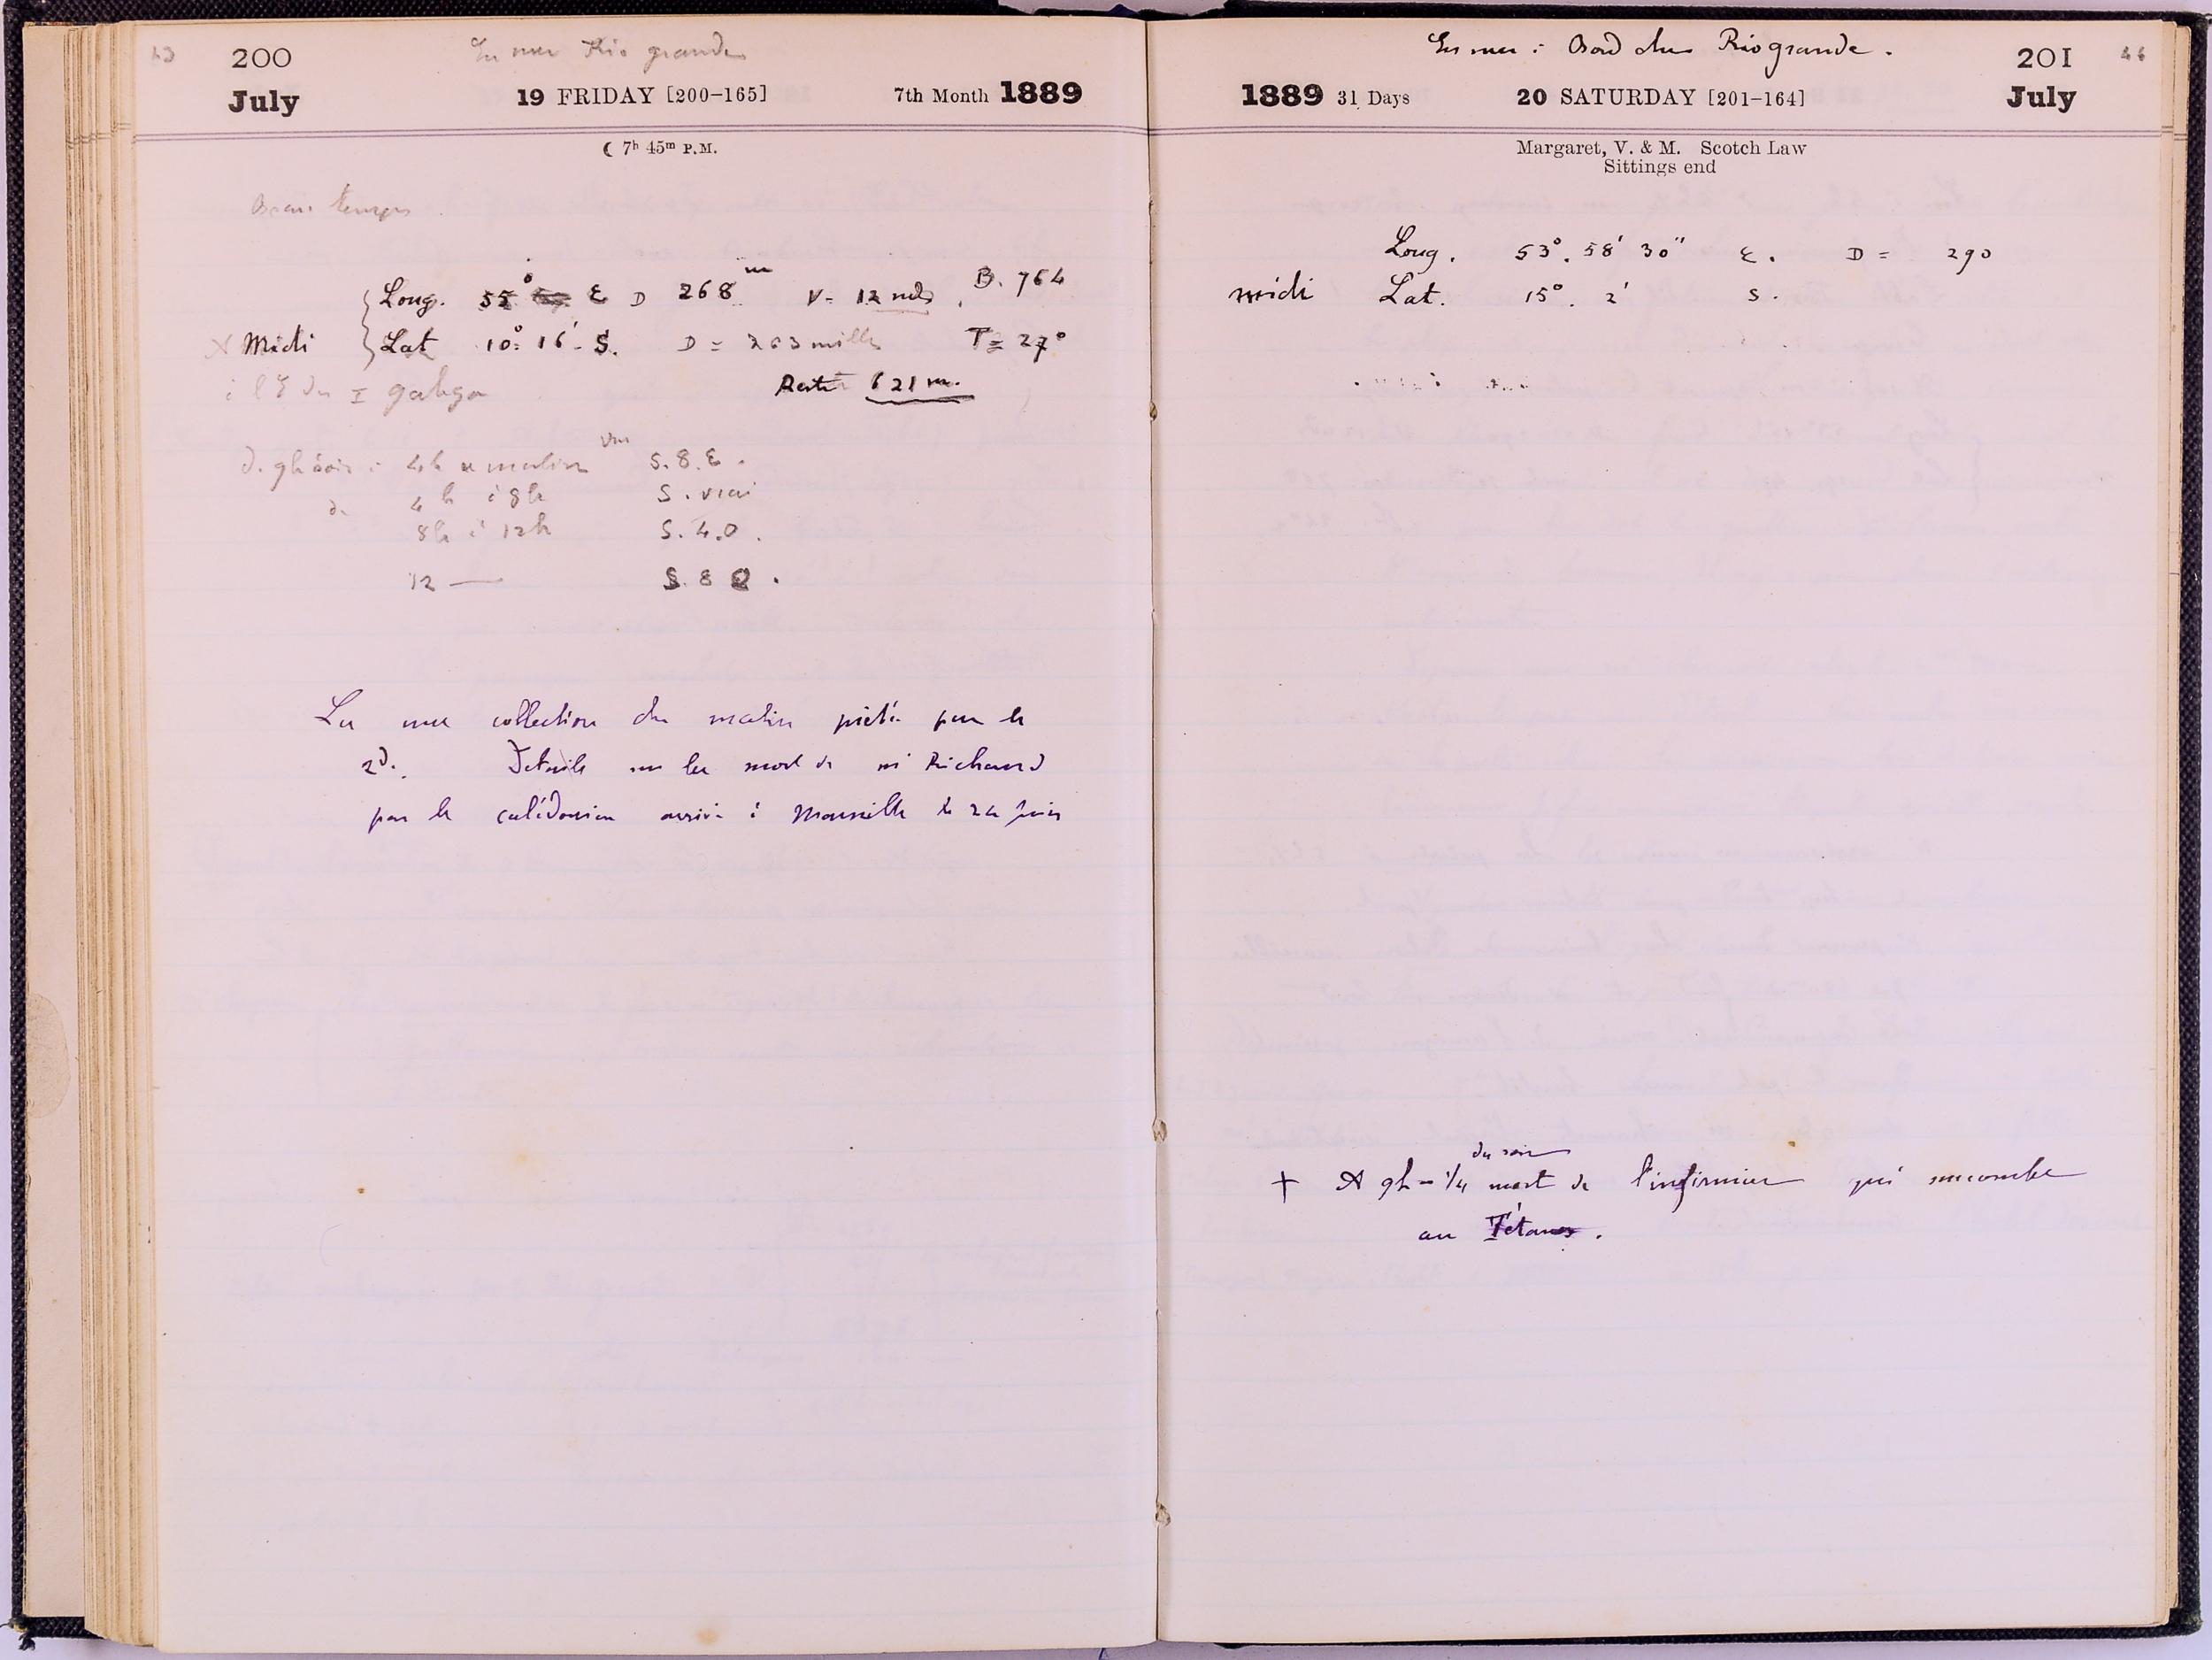 200
En mer Rio grande
July
19 FRIDAY [200–165]
7th Month 1889
☾ 7h 45m P.M.
Beau temps
Long. 55° E D 268 m V = 12 nds. B. 764
A Midi
Lat 10° 16' S. D = 263 mille T = 27°
à l'E du galega
Reste 621 m.
4h du matin S. 8. E.
4h à 8h S. vrai
8h à 12h S. 4. O.
12 — S. 8 O.
Lu une collection du matin prêté par le
2d. Détails sur la mort de Mr Richaud
par le calédonien arrivé à Marseille le juin
En mer : Bord du Rio grande.
201
46
1889 31 Days
20 SATURDAY [201–164]
July
Margaret, V. & M. Scotch Law
Sittings end
Long. 53°. 58' 30" E. D = 290
midi Lat. 15°. 2' S.
du soir
+ A 9h 1/4 mort de l'infirmier qui succombe
au Tétanos.